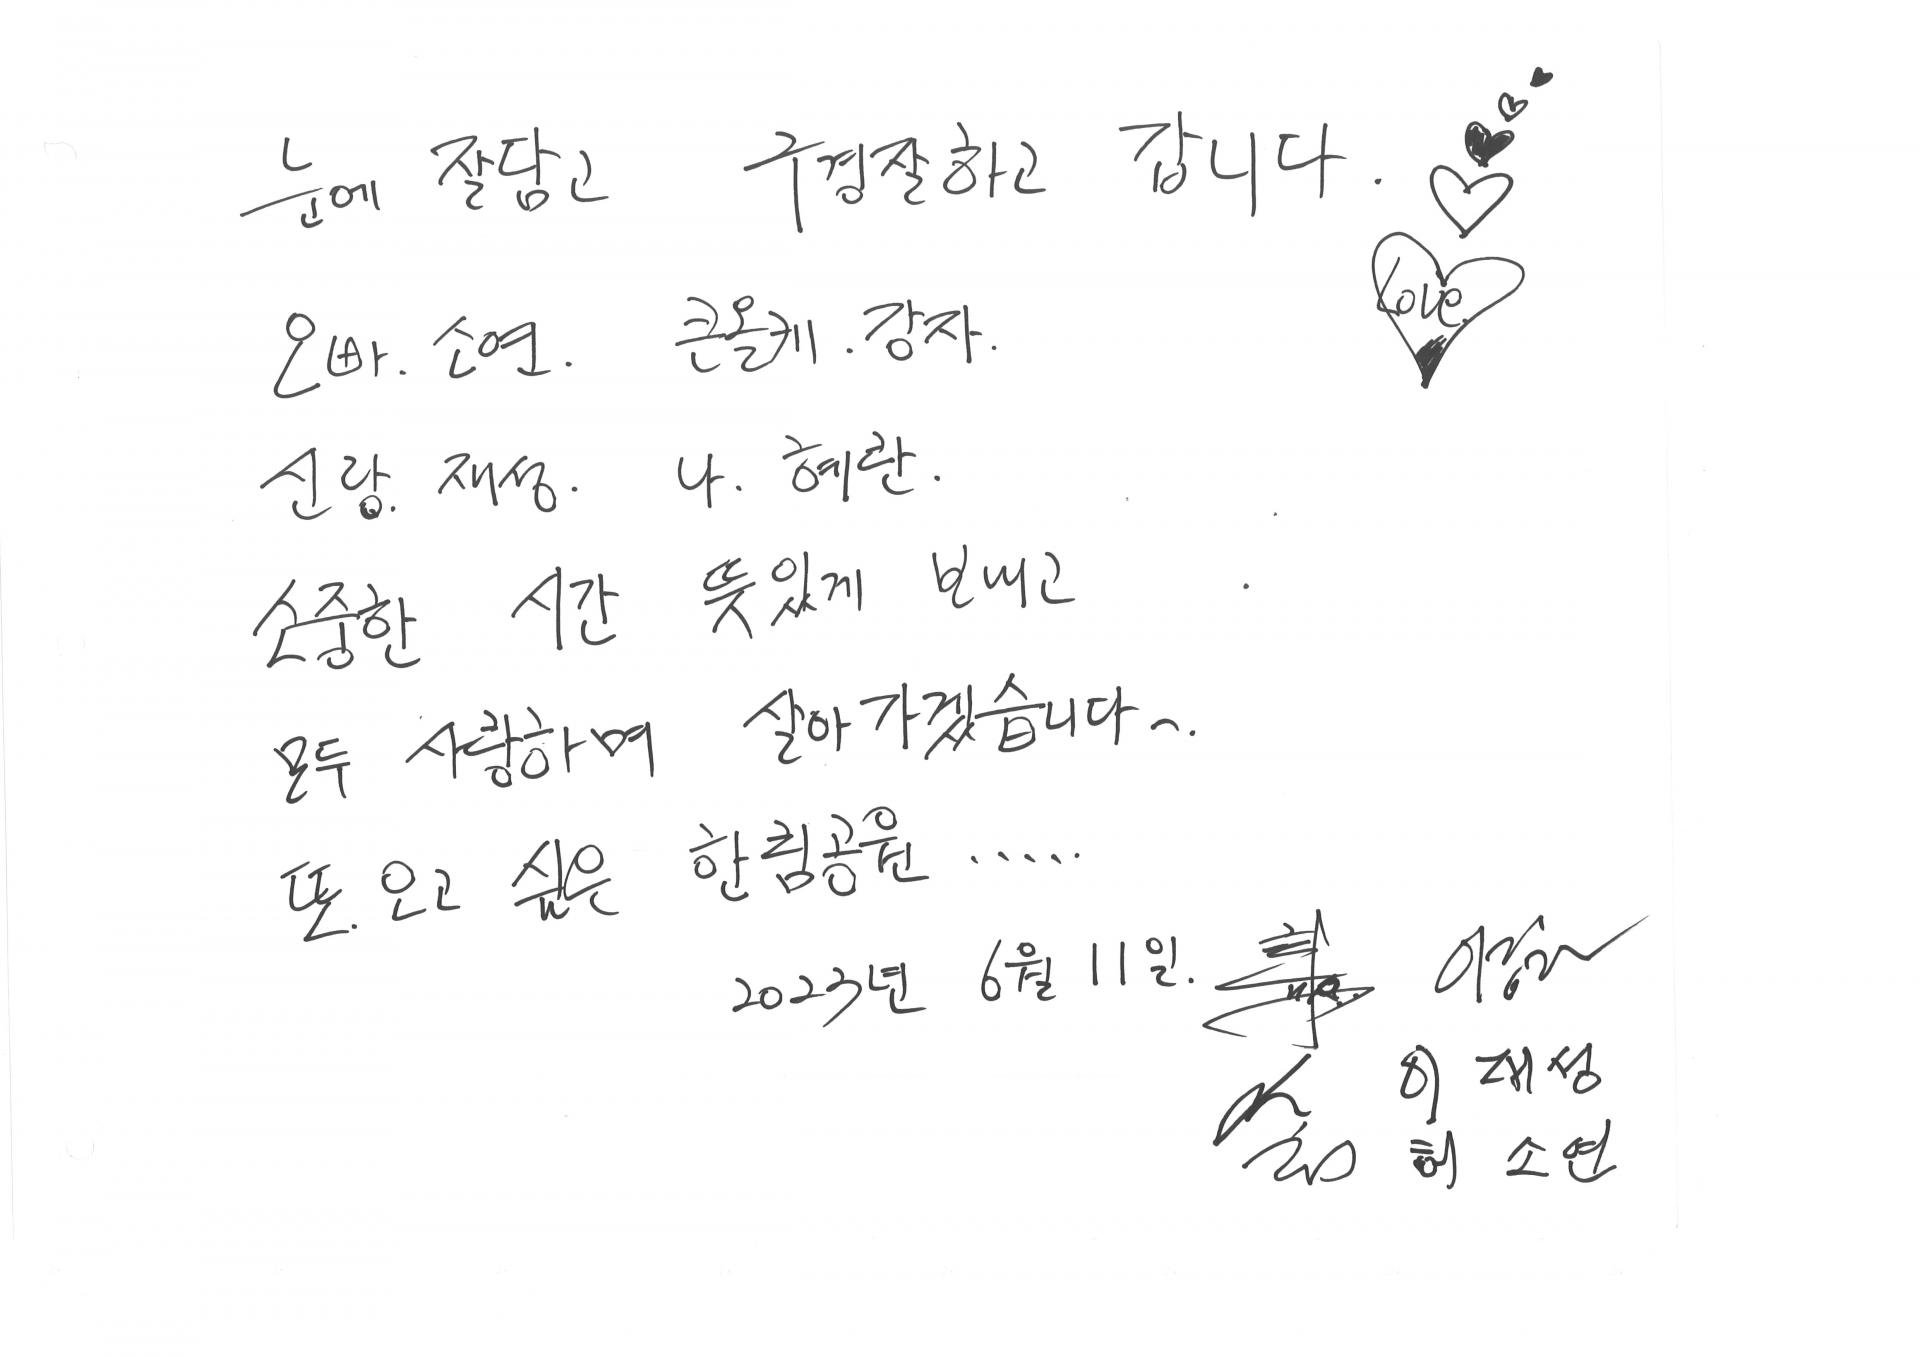 눈에 잘담고 구경잘하고 갑니다.
Love
오빠. 소연. 큰올케. 강자.
신랑. 재성. 나. 혜란.
소중한 시간 뜻있게 보내고
모두 사랑하며 살아가겠습니다~.
또. 오고 싶은 한림공원 .....
2023년 6월 11일.
이재성
허소연